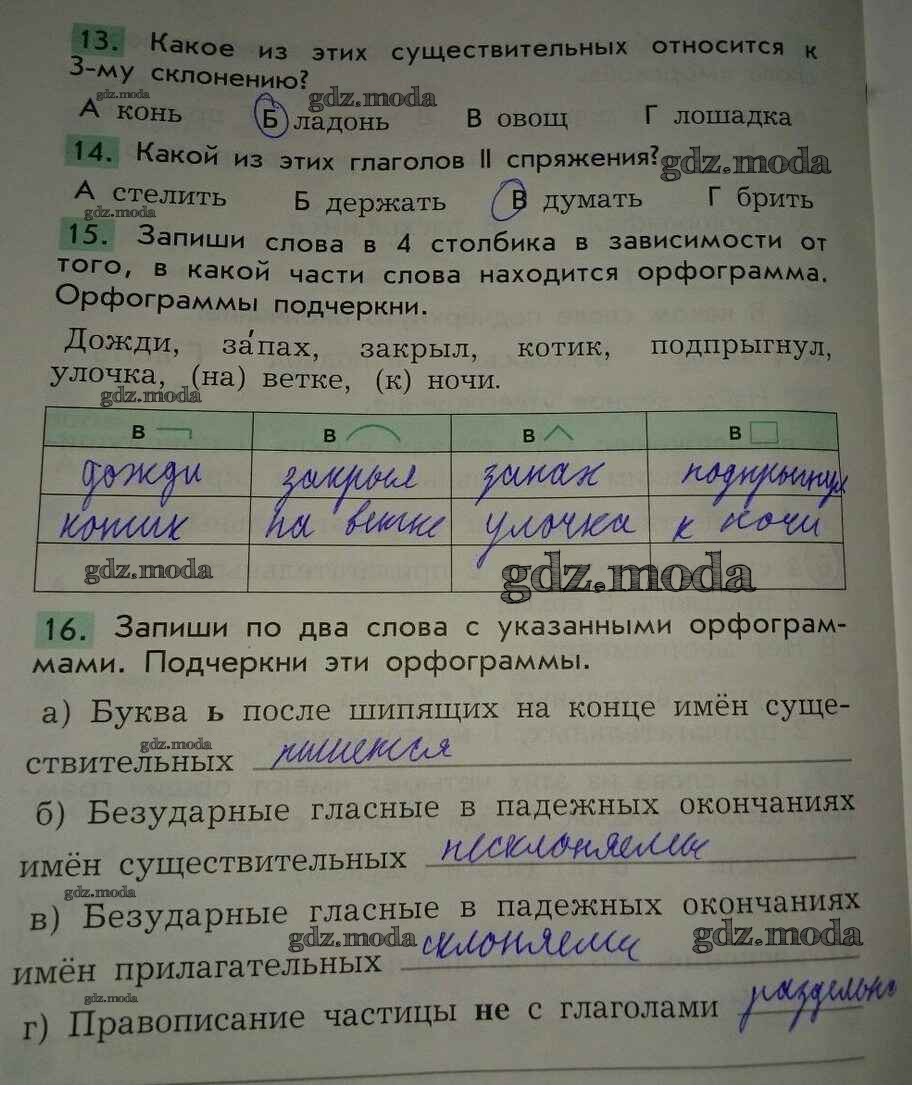 13. Какое из этих существительных относится к
3-му склонению?
gdz.moda
gdz.moda
А конь Б ладонь В овощ Г лошадка
14. Какой из этих глаголов II спряжения?
gdz.moda
А стелить Б держать В думать Г брить
gdz.moda
15. Запиши слова в 4 столбика в зависимости от
того, в какой части слова находится орфограмма.
Орфограммы подчеркни.
Дожди, за́пах, закрыл, котик, подпрыгнул,
улочка, (на) ветке, (к) ночи.
gdz.moda
в в в в
дожди закрыл запах подпрыгнул
котик на ветке улочка к ночи
gdz.moda gdz.moda
16. Запиши по два слова с указанными орфограм-
мами. Подчеркни эти орфограммы.
а) Буква ь после шипящих на конце имён суще-
gdz.moda
ствительных пишется
б) Безударные гласные в падежных окончаниях
имён существительных несклоняемы
gdz.moda
в) Безударные гласные в падежных окончаниях
gdz.moda gdz.moda
имён прилагательных склоняеми
gdz.moda
г) Правописание частицы не с глаголами раздельно